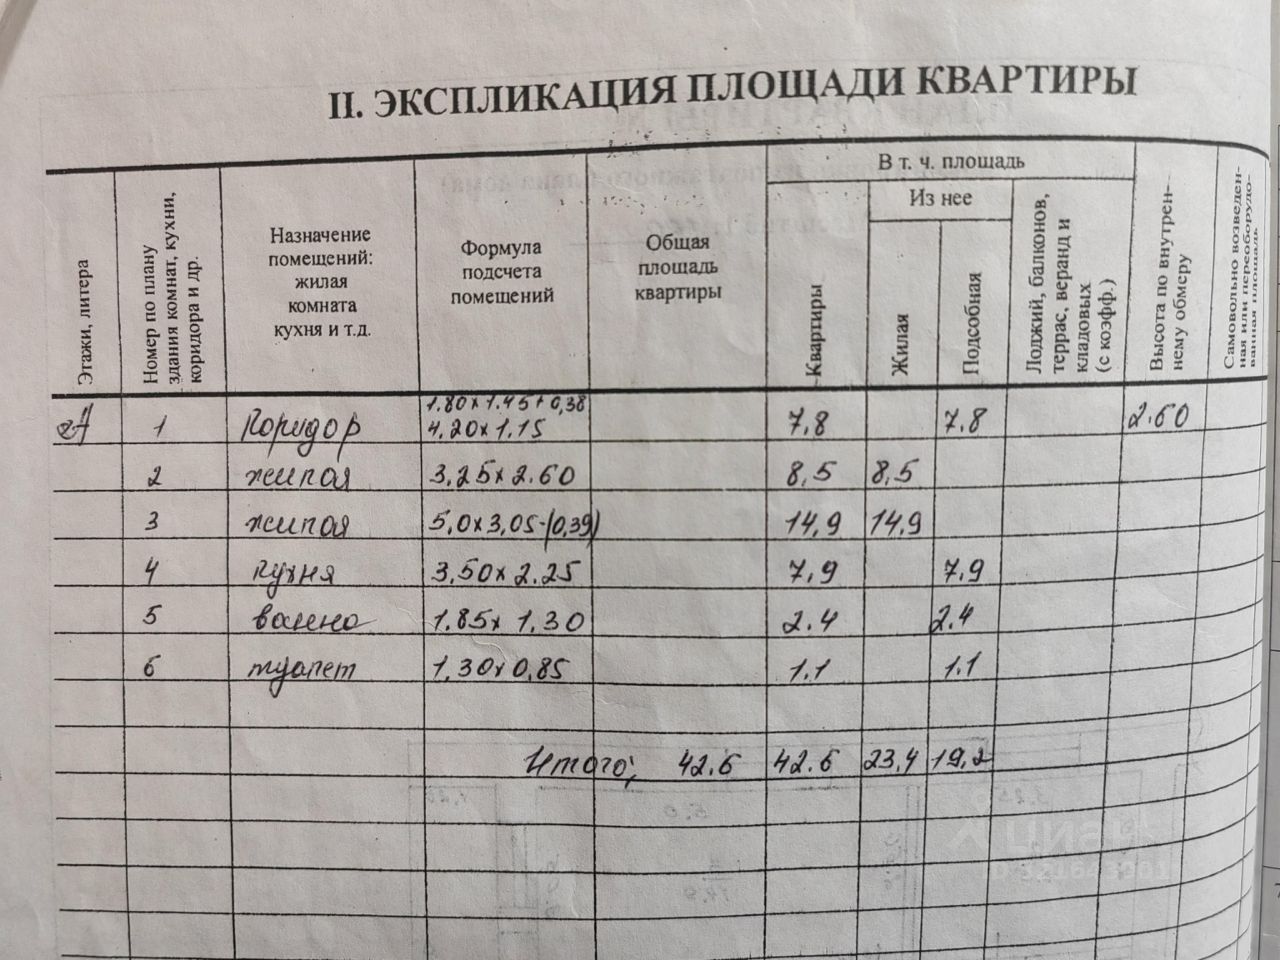 II. ЭКСПЛИКАЦИЯ ПЛОЩАДИ КВАРТИРЫ
Этажи, литера
Номер по плану
здания комнат, кухни,
коридора и др.
Назначение
помещений:
жилая
комната
кухня и т.д.
Формула
подсчета
помещений
Общая
площадь
квартиры
В т. ч. площадь
Квартиры
Из нее
Жилая
Подсобная
Лоджий, балконов,
террас, веранд и
кладовых
(с коэфф.)
Высота по внутрен-
нему обмеру
Самовольно возведен-
ная или переоборудо-
ванная площадь
1.80x1.45+0,38
1 Коридор 4.20x1.15 7.8 7.8 2.60
2 жилая 3,25x2.60 8,5 8,5
3 жилая 5,0x3,05-(0,39) 14,9 14,9
4 кухня 3,50x2.25 7,9 7,9
5 ванна 1.85x1.30 2.4 2.4
6 туалет 1,30x0,85 1.1 1.1
Итого: 42.6 42.6 23,4 19,2